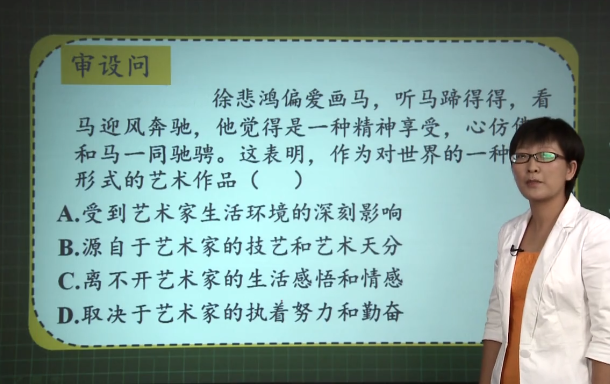 审设问
徐悲鸿偏爱画马，听马蹄得得，看
马迎风奔驰，他觉得是一种精神享受，心仿佛
和马一同驰骋。这表明，作为对世界的一种
形式的艺术作品（ ）
A.受到艺术家生活环境的深刻影响
B.源自于艺术家的技艺和艺术天分
C.离不开艺术家的生活感悟和情感
D.取决于艺术家的执着努力和勤奋